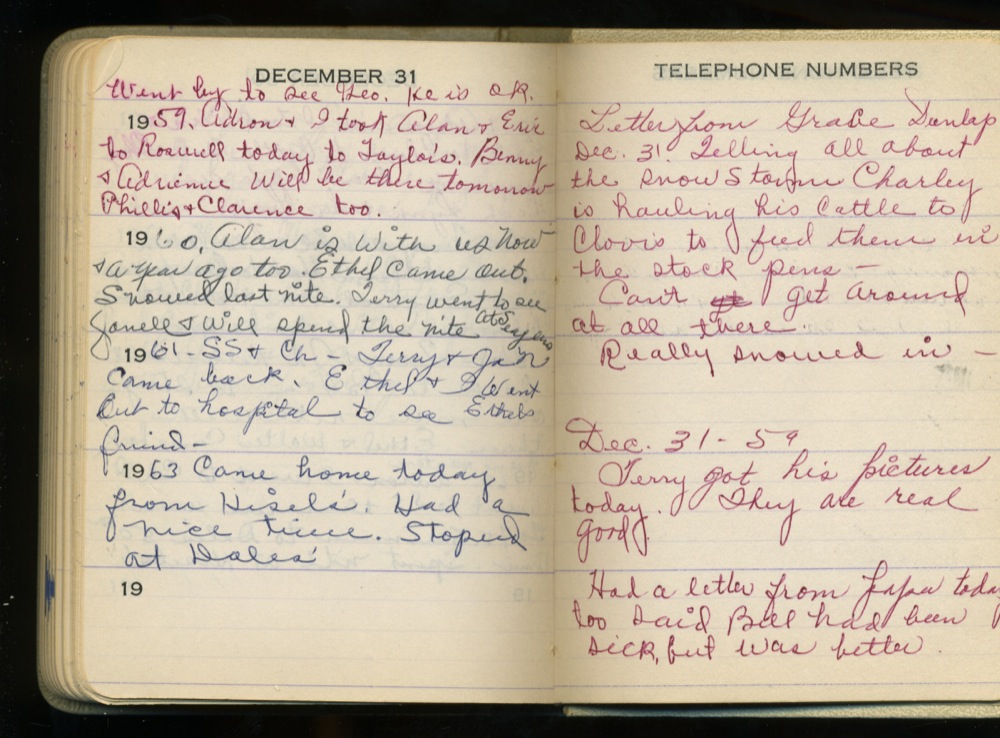 DECEMBER 31
Went by to see Geo. He is ok.
1959. Adron & I took Alan & Eric
to Roswell today to Taylo's. Benny
& Adrienne will be there tomorrow
Phillis & Clarence too.
1960. Alan is with us now
& a year ago too. Ethel came out.
Snowed last nite. Terry went to see
Janell & will spend the nite at
1961 - SS & Ch - Terry & Jan
came back. Ethel & I went
out to hospital to see Ethels
friend -
1963 Came home today
from Hisels'. Had a
nice time. Stoped
at Dales'
19
TELEPHONE NUMBERS
Letter from Gracie Dunlap
Dec. 31. Telling all about
the snow storm Charley
is hauling his cattle to
Clovis to feed them in
the stock pens -
Can't get around
at all there
Really snowed in -
Dec. 31 - 59
Terry got his pictures
today. They are real
good.
Had a letter from Papa today
too said Bill had been
sick, but was better.